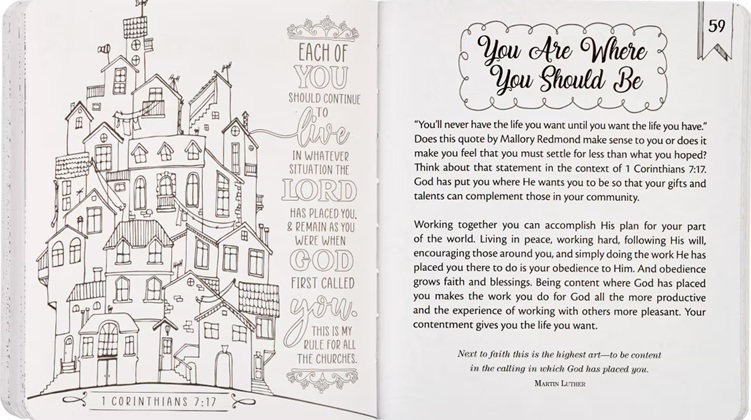 EACH OF
YOU
SHOULD CONTINUE
TO
live
IN WHATEVER
SITUATION THE
LORD
HAS PLACED YOU,
& REMAIN AS YOU
WERE WHEN
GOD
FIRST CALLED
you.
THIS IS MY
RULE FOR ALL
THE CHURCHES.
1 CORINTHIANS 7:17
59
You Are Where
You Should Be
“You’ll never have the life you want until you want the life you have.”
Does this quote by Mallory Redmond make sense to you or does it
make you feel that you must settle for less than what you hoped?
Think about that statement in the context of 1 Corinthians 7:17.
God has put you where He wants you to be so that your gifts and
talents can complement those in your community.
Working together you can accomplish His plan for your part
of the world. Living in peace, working hard, following His will,
encouraging those around you, and simply doing the work He has
placed you there to do is your obedience to Him. And obedience
grows faith and blessings. Being content where God has placed
you makes the work you do for God all the more productive
and the experience of working with others more pleasant. Your
contentment gives you the life you want.
Next to faith this is the highest art—to be content
in the calling in which God has placed you.
MARTIN LUTHER